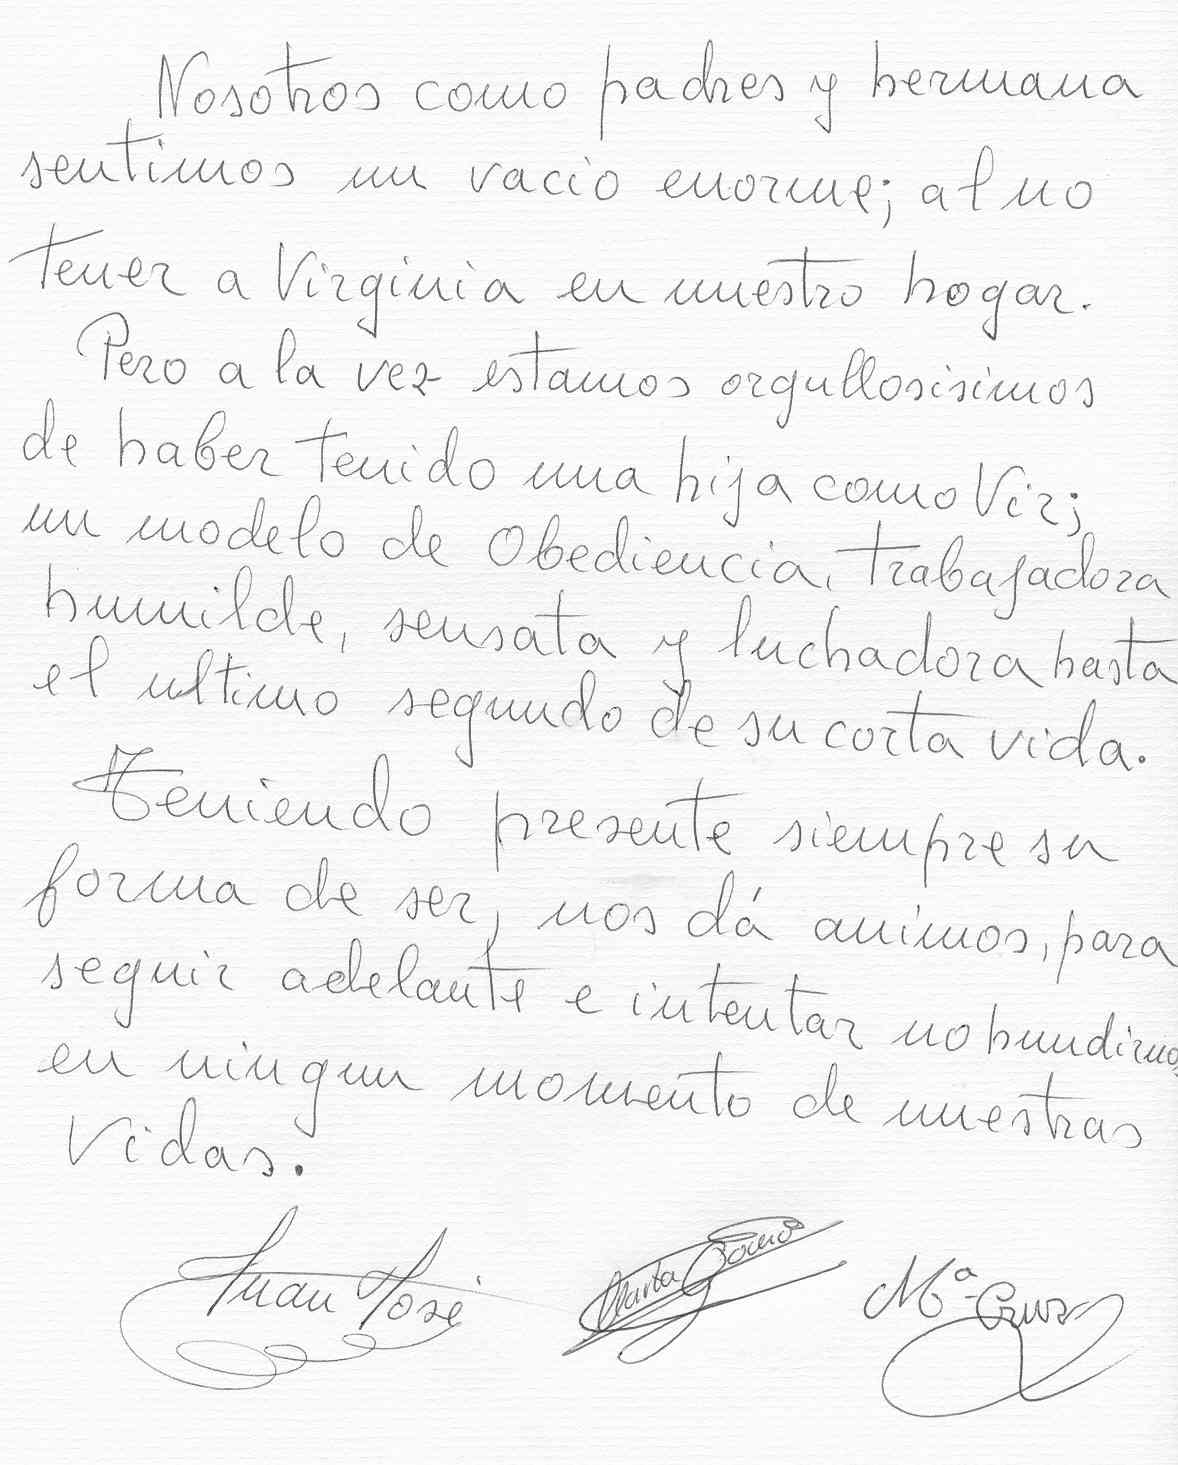 Nosotros como padres y hermana
sentimos un vacio enorme; al no
tener a Virginia en nuestro hogar.
Pero a la vez estamos orgullosisimos
de haber tenido una hija como Vir;
un modelo de Obediencia, trabajadora
humilde, sensata y luchadora hasta
el ultimo segundo de su corta vida.
Teniendo presente siempre su
forma de ser, nos dá animos, para
seguir adelante e intentar no hundirnos
en ningun momento de nuestras
vidas.
Juan José Marta Mª Cruz